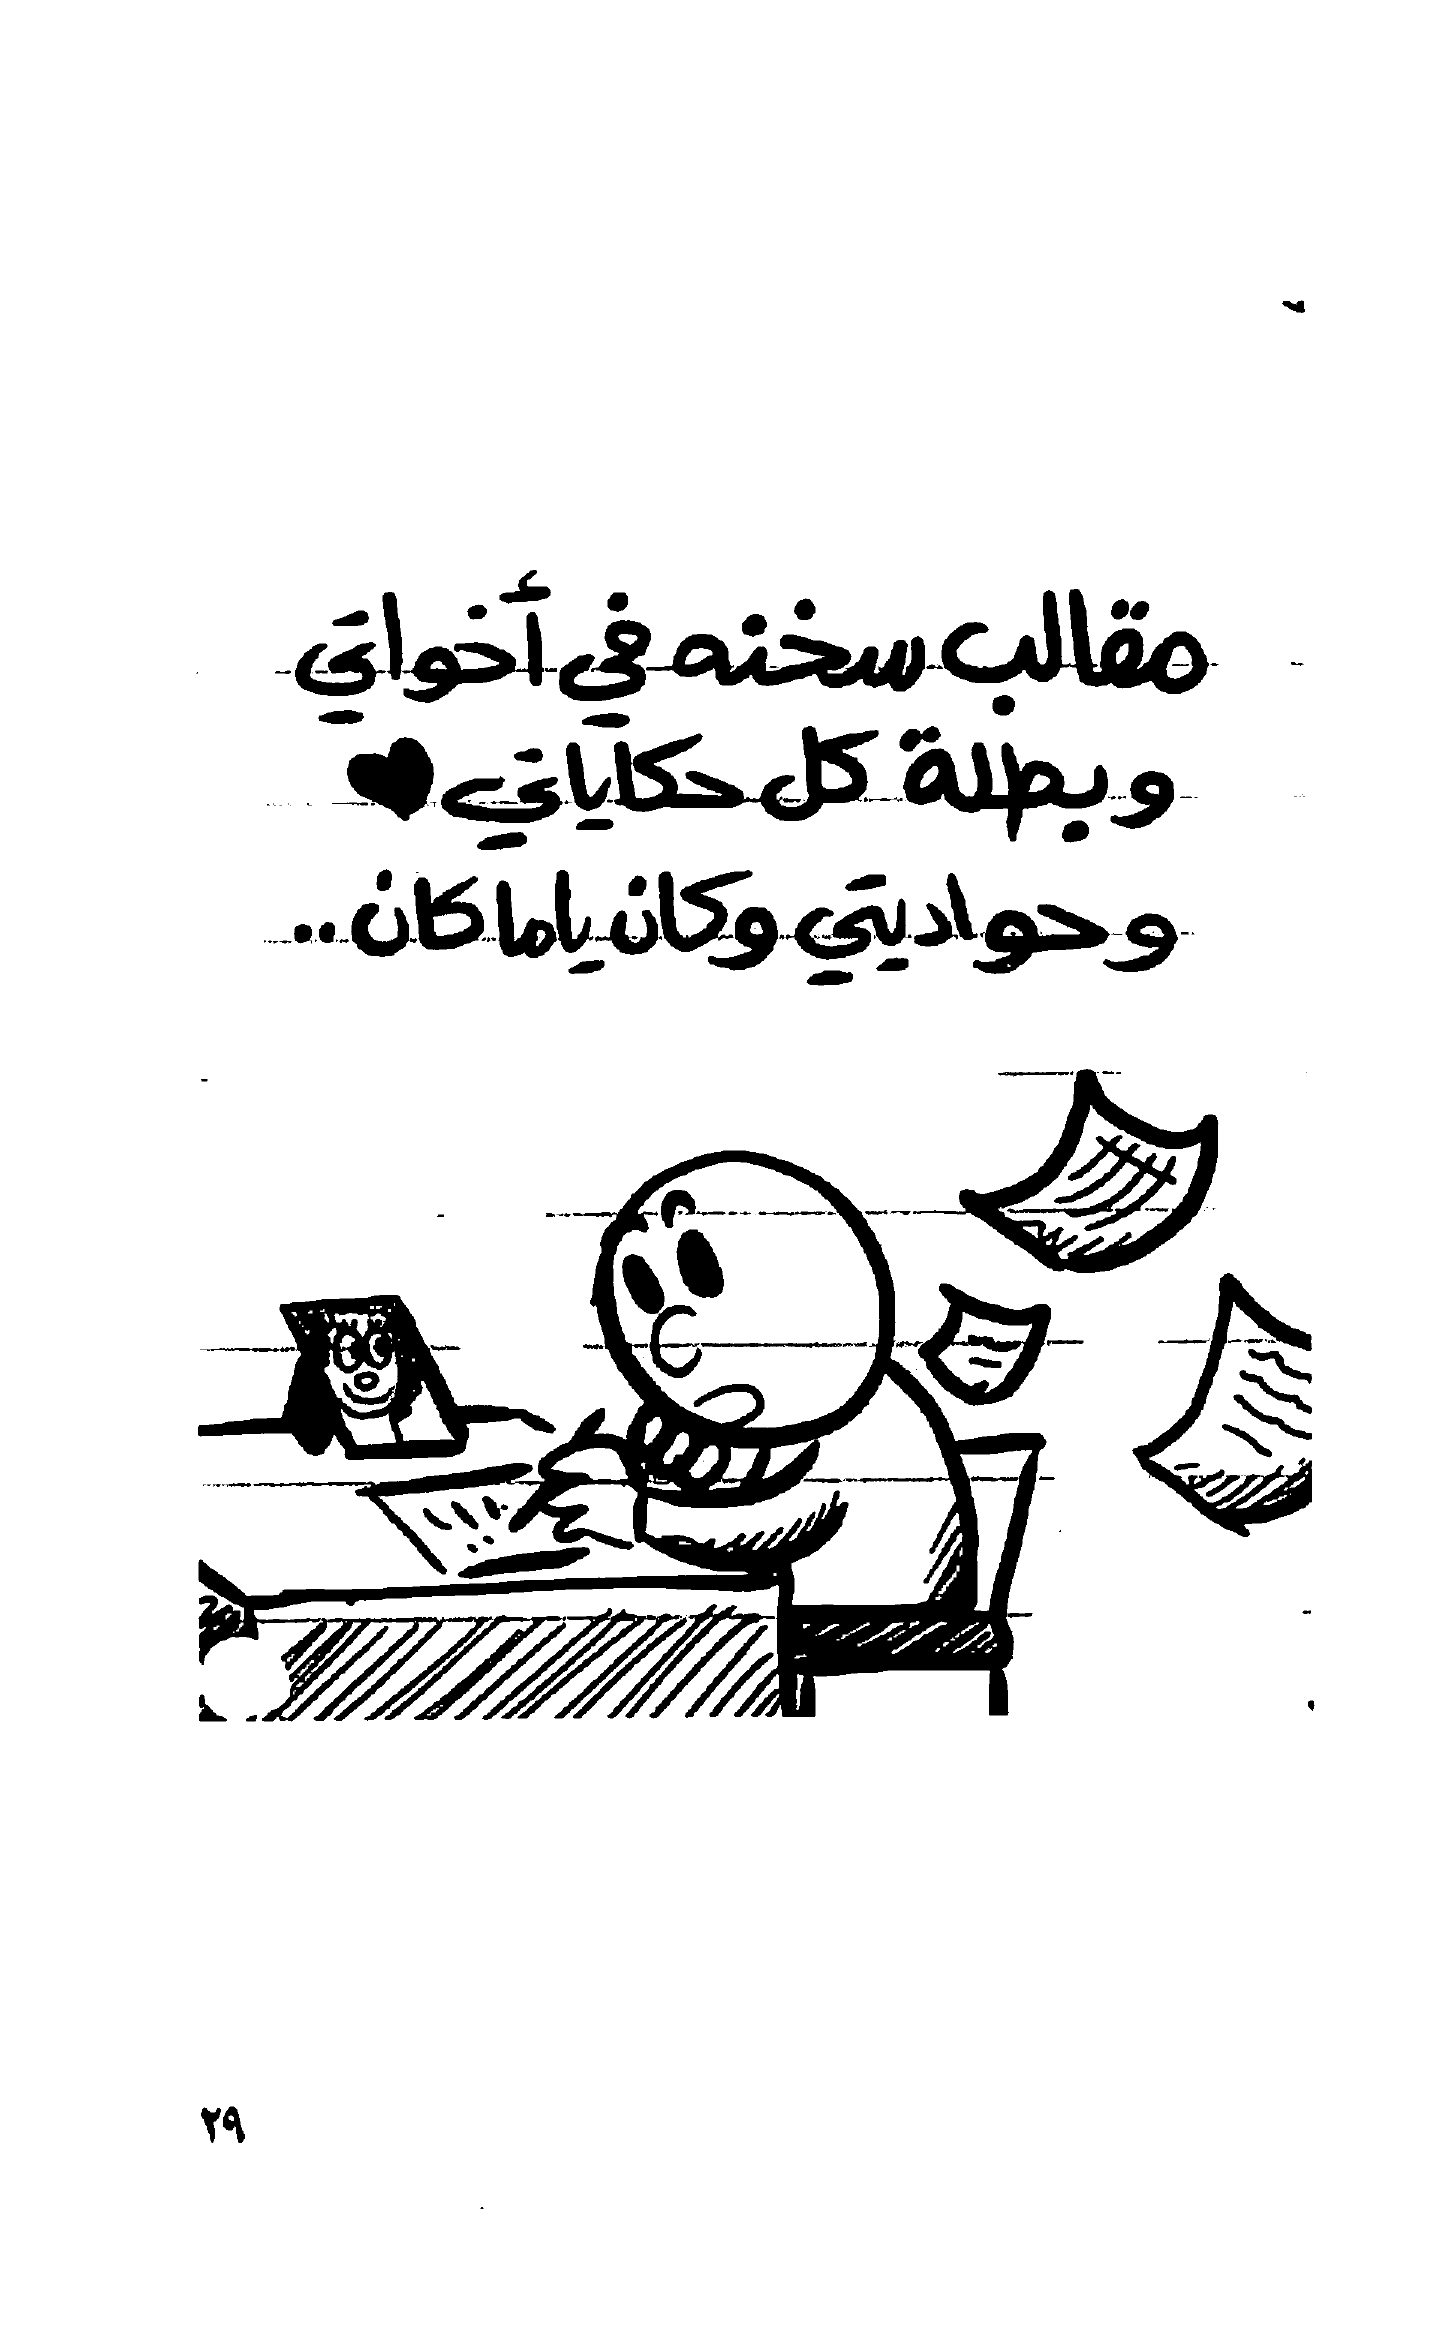 مقالب سخنه في أخواتي
وبطلة كل حكاياتي ♥
وحواديتي وكان ياما كان ..
٢٩